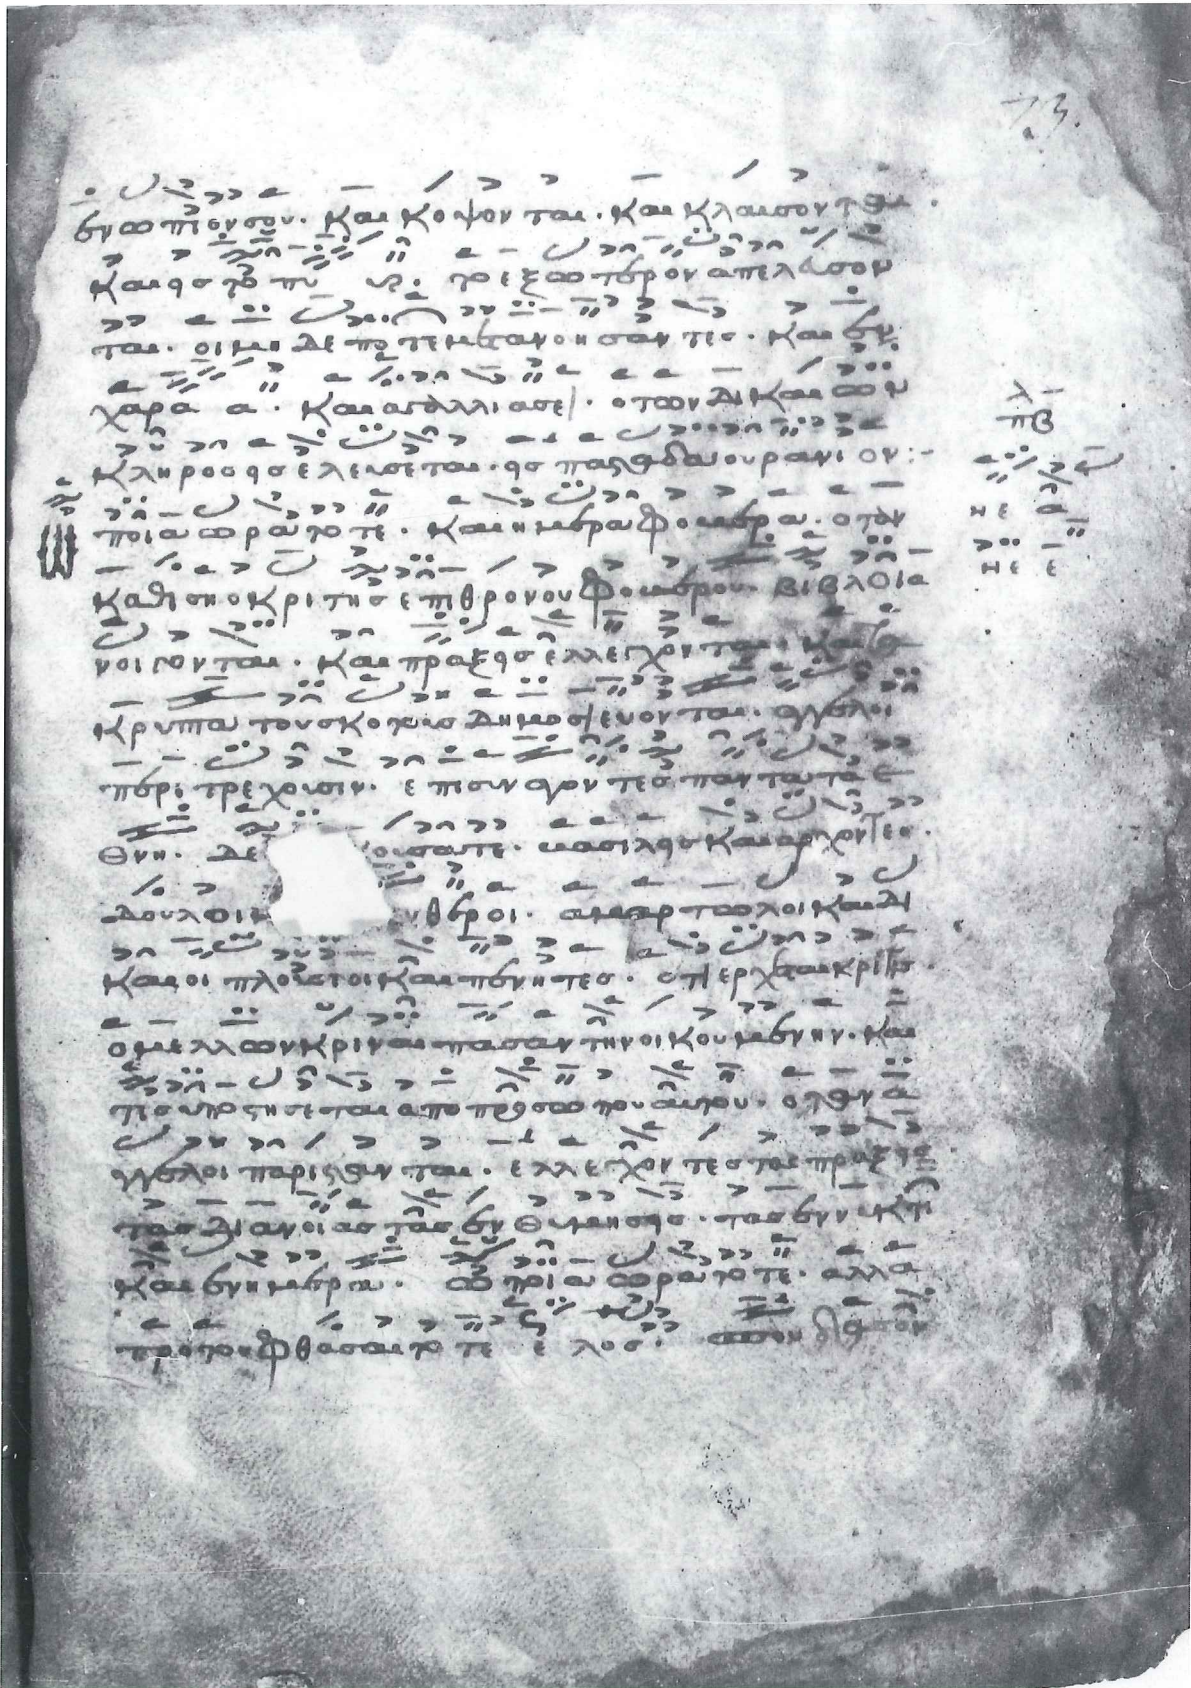 73.
ενωπιον σου· και κοψονται· και κλαυσονται·
και εις το πυ υρ· το εξωτερον απελευσον
ται· οι μηδεποτε μετανοησαντες· και εν
χαρα α· και αγαλλιασει· ο των δικαιων
κληρος εισελευσεται· εις παστάδα ουρανιον:
λ
πβ
ποια ωρα τοτε· και ημερα φοβερα· οταν
νε α
καθιση ο κριτης επι θρονου φοβερου· βιβλοι α
νε ε
νοιγονται· και πραξεις ελλεγχονται· και τα
κρυπτα του σκοτους δημοσιευονται· αγγελοι
περιτρεχουσιν· επισυναγοντες παντα τα ε
θνη· δε ουσατε· βασιλεις και αρχοντες·
δουλοι κ υθεροι· αμαρτωλοι και δι
καιοι πλουσιοι και πενητες· οτι ερχεται κριτης·
ο μελλων κριναι πασαν την οικουμενην· και
τις υποστησεται απο προσωπου αυτου· οταν α
γγελοι παριστανται· ελλεγχοντες τας πραξεις·
τας διανοιας τας ενθυμησεις· τας εν νυκτι
και εν ημερα· ω ποια ωρα τοτε· αλλα
προ του φθασαι το τε ε λος·